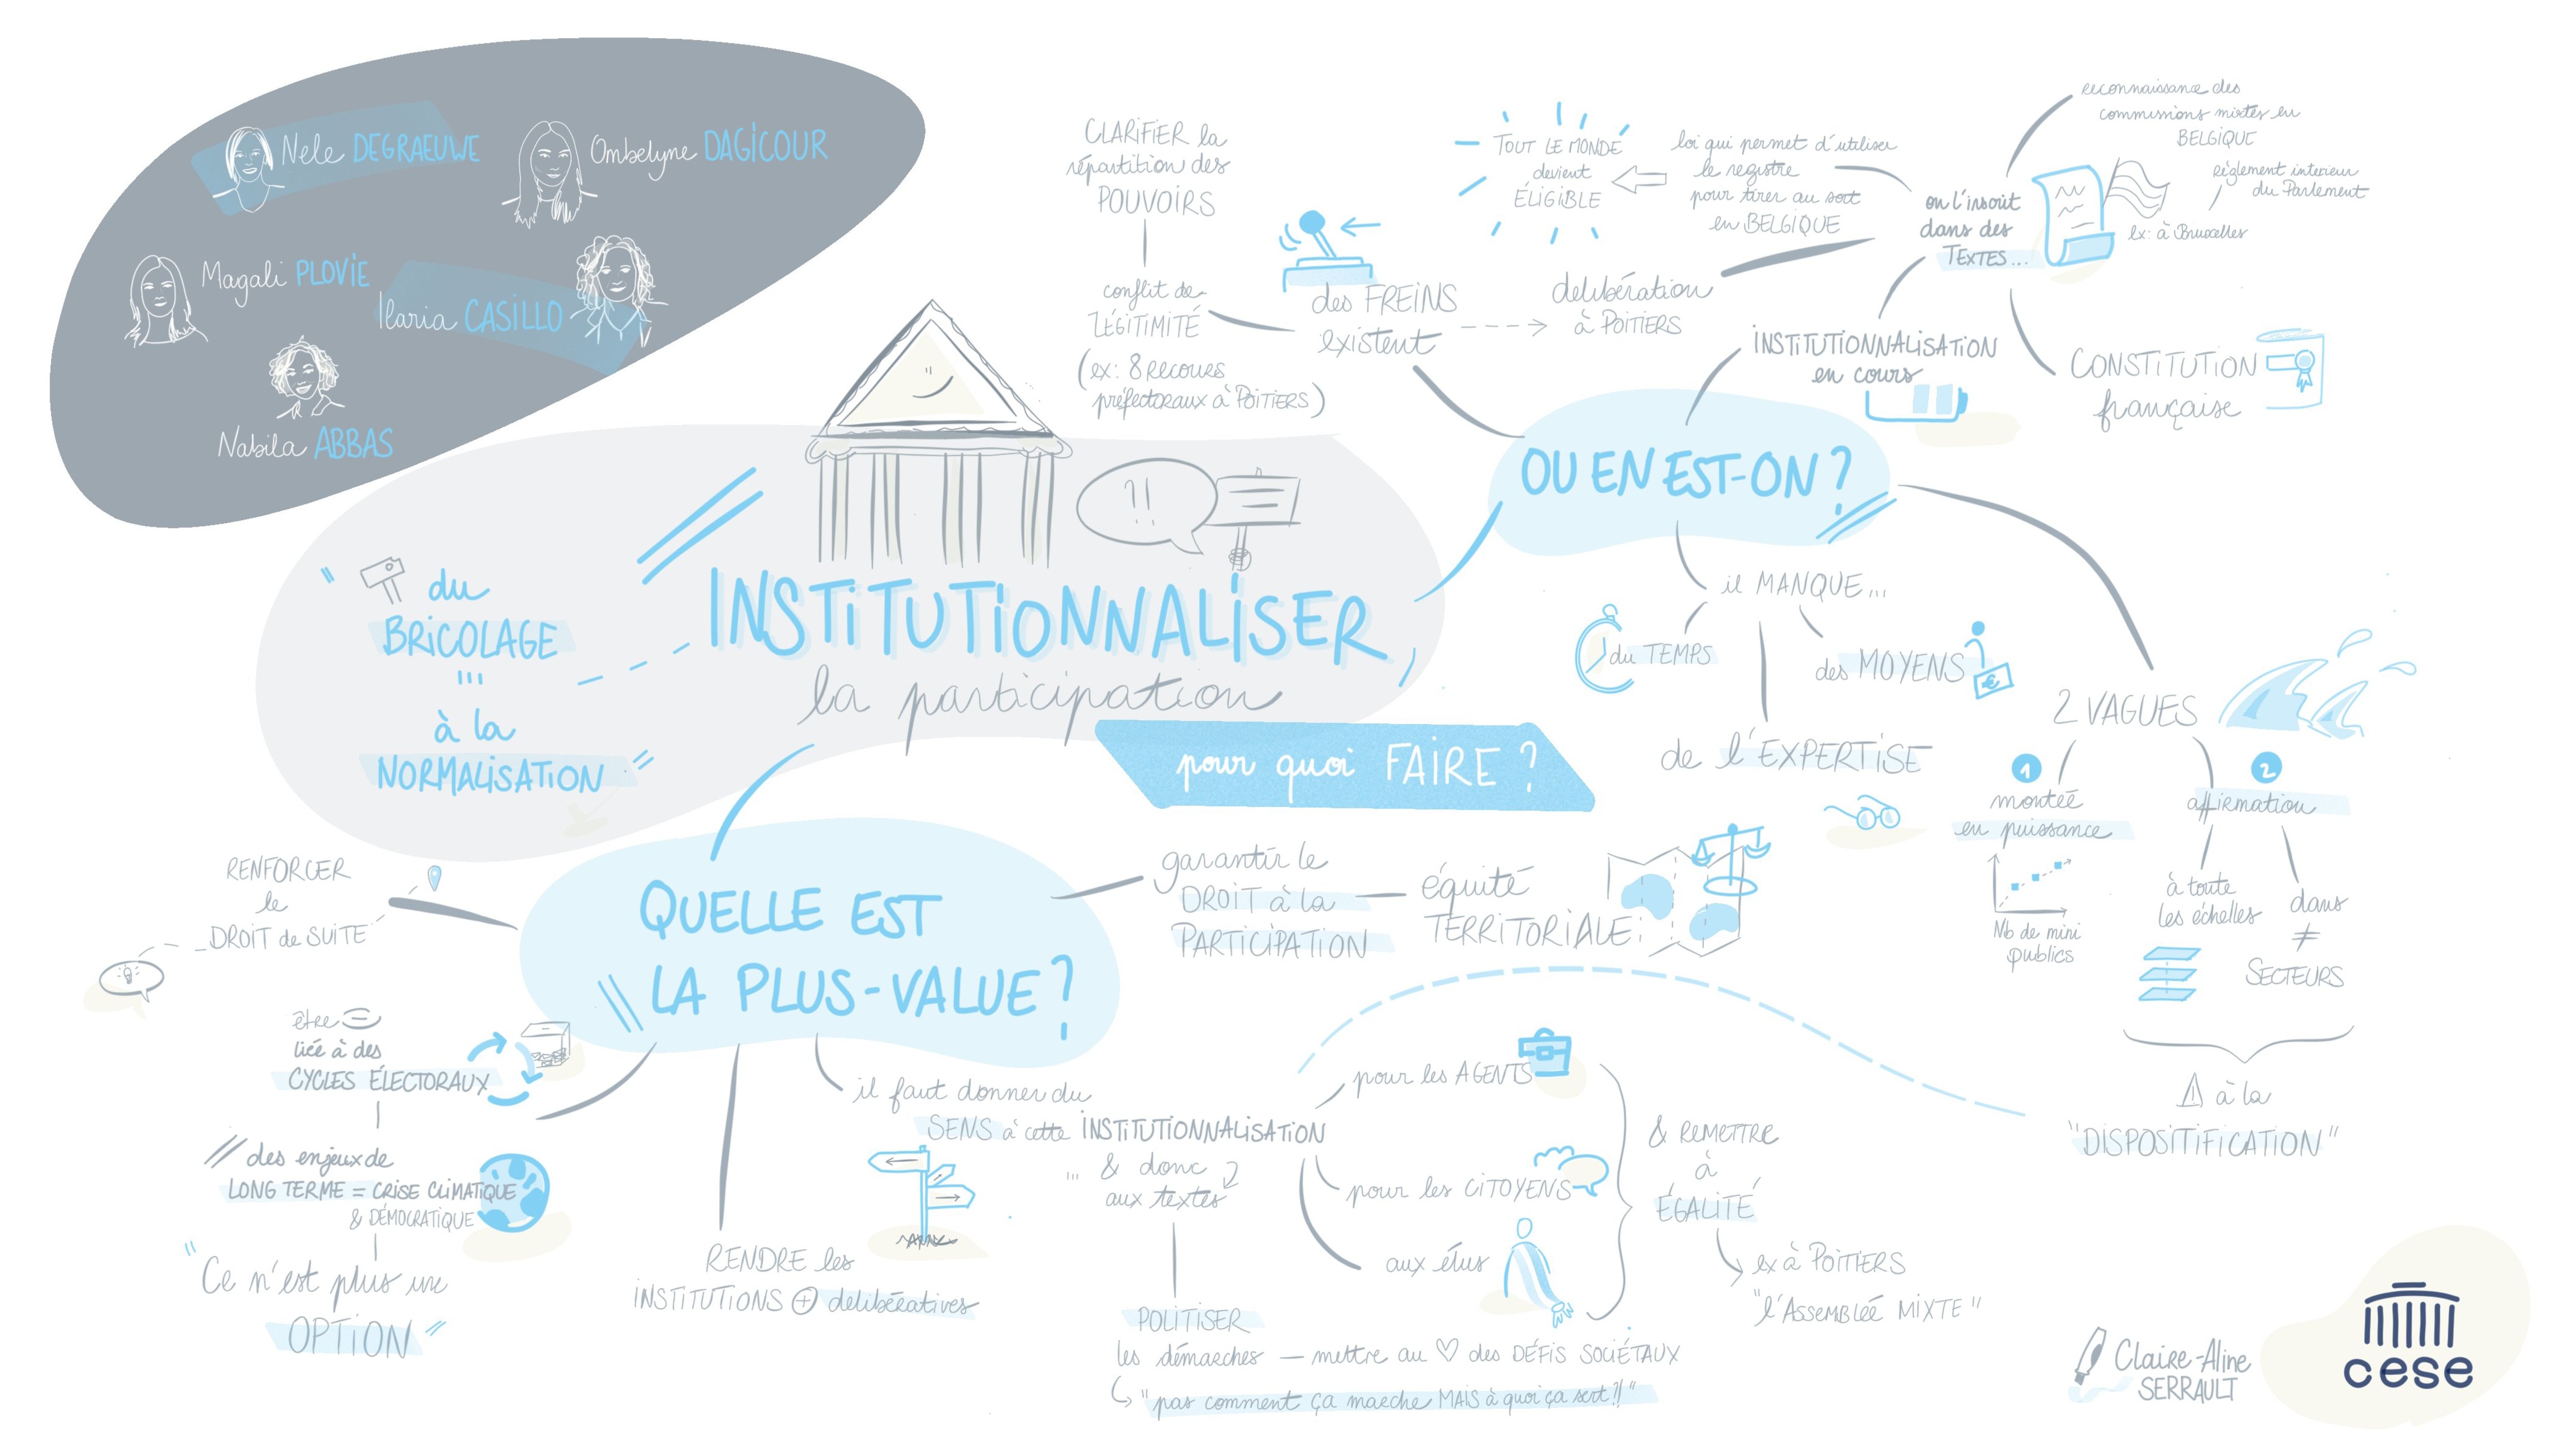 Nele DEGRAEUWE
Ombelyne DAGICOUR
Magali PLOVIE
Ilaria CASILLO
Nabila ABBAS
" du
BRICOLAGE
...
à la
NORMALISATION "
?!
INSTITUTIONNALISER
la participation
pour quoi FAIRE ?
OU EN EST-ON ?
des FREINS
existent
conflit de
LÉGITIMITÉ
(ex: 8 recours
préfectoraux à POITIERS)
CLARIFIER la
répartition des
POUVOIRS
délibération
à POITIERS
INSTITUTIONNALISATION
en cours
on l'inscrit
dans des
TEXTES...
loi qui permet d'utiliser
le registre
pour tirer au sort
en BELGIQUE
TOUT LE MONDE
devient
ÉLIGIBLE
reconnaissance des
commissions mixtes en
BELGIQUE
règlement interieur
du Parlement
ex: à Bruxelles
CONSTITUTION
française
il MANQUE...
du TEMPS
des MOYENS
€
de l'EXPERTISE
2 VAGUES
1
montée
en puissance
Nb de mini
publics
2
affirmation
à toute
les échelles
dans
≠
SECTEURS
⚠ à la
"DISPOSITIFICATION"
QUELLE EST
LA PLUS-VALUE ?
garantir le
DROIT à la
PARTICIPATION
équité
TERRITORIALE
RENFORCER
le
DROIT de SUITE
être
liée à des
CYCLES ÉLECTORAUX
// des enjeux de
LONG TERME = CRISE CLIMATIQUE
& DÉMOCRATIQUE
"Ce n'est plus une
OPTION"
RENDRE les
INSTITUTIONS + délibératives
il faut donner du
SENS à cette INSTITUTIONNALISATION
... & donc
aux textes
POLITISER
les démarches — mettre au ♡ des DÉFIS SOCIÉTAUX
"pas comment ça marche MAIS à quoi ça sert ?!"
pour les AGENTS
pour les CITOYENS
aux élus
& REMETTRE
à
ÉGALITÉ
ex à POITIERS
"l'ASSEMBLÉE MIXTE"
Claire-Aline
SERRAULT
cese